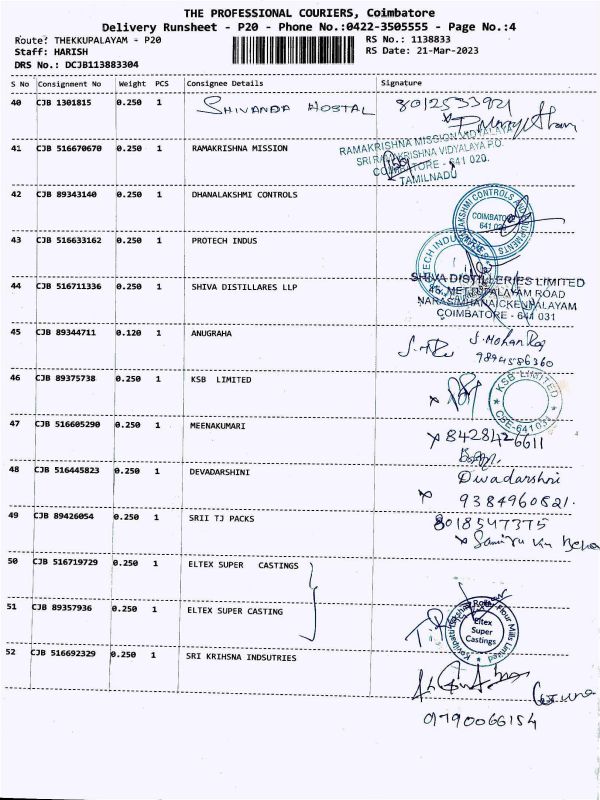 THE PROFESSIONAL COURIERS, Coimbatore
Delivery Runsheet - P20 - Phone No.:0422-3505555 - Page No.:4
Route: THEKKUPALAYAM - P20 RS No.: 1138833
Staff: HARISH RS Date: 21-Mar-2023
DRS No.: DCJB113883304
S No Consignment No Weight PCS Consignee Details Signature
40 CJB 1301815 0.250 1 SHIVANDA HOSTAL 8012533921
RAMAKRISHNA MISSION VIDYALAYA
41 CJB 516670670 0.250 1 RAMAKRISHNA MISSION
SRI RAMAKRISHNA VIDYALAYA P.O.
COIMBATORE - 641 020.
TAMILNADU
42 CJB 89343140 0.250 1 DHANALAKSHMI CONTROLS
COIMBATORE
43 CJB 516633162 0.250 1 PROTECH INDUS
SHIVA DISTILLERIES LIMITED
44 CJB 516711336 0.250 1 SHIVA DISTILLARES LLP
METTUPALAYAM ROAD
NARASIMHANAICKENPALAYAM
COIMBATORE - 641 031
45 CJB 89344711 0.120 1 ANUGRAHA S.Mohan Raj
9894586360
46 CJB 89375738 0.250 1 KSB LIMITED
KSB LIMITED
CBE-641031
47 CJB 516605290 0.250 1 MEENAKUMARI
x 8428426611
48 CJB 516445823 0.250 1 DEVADARSHINI
Dwadarshni
x 9384960821.
49 CJB 89426054 0.250 1 SRII TJ PACKS 8018547375
50 CJB 516719729 0.250 1 ELTEX SUPER CASTINGS
51 CJB 89357936 0.250 1 ELTEX SUPER CASTING
Eltex
Super
Castings
52 CJB 516692329 0.250 1 SRI KRIHSNA INDSUTRIES
9790066154